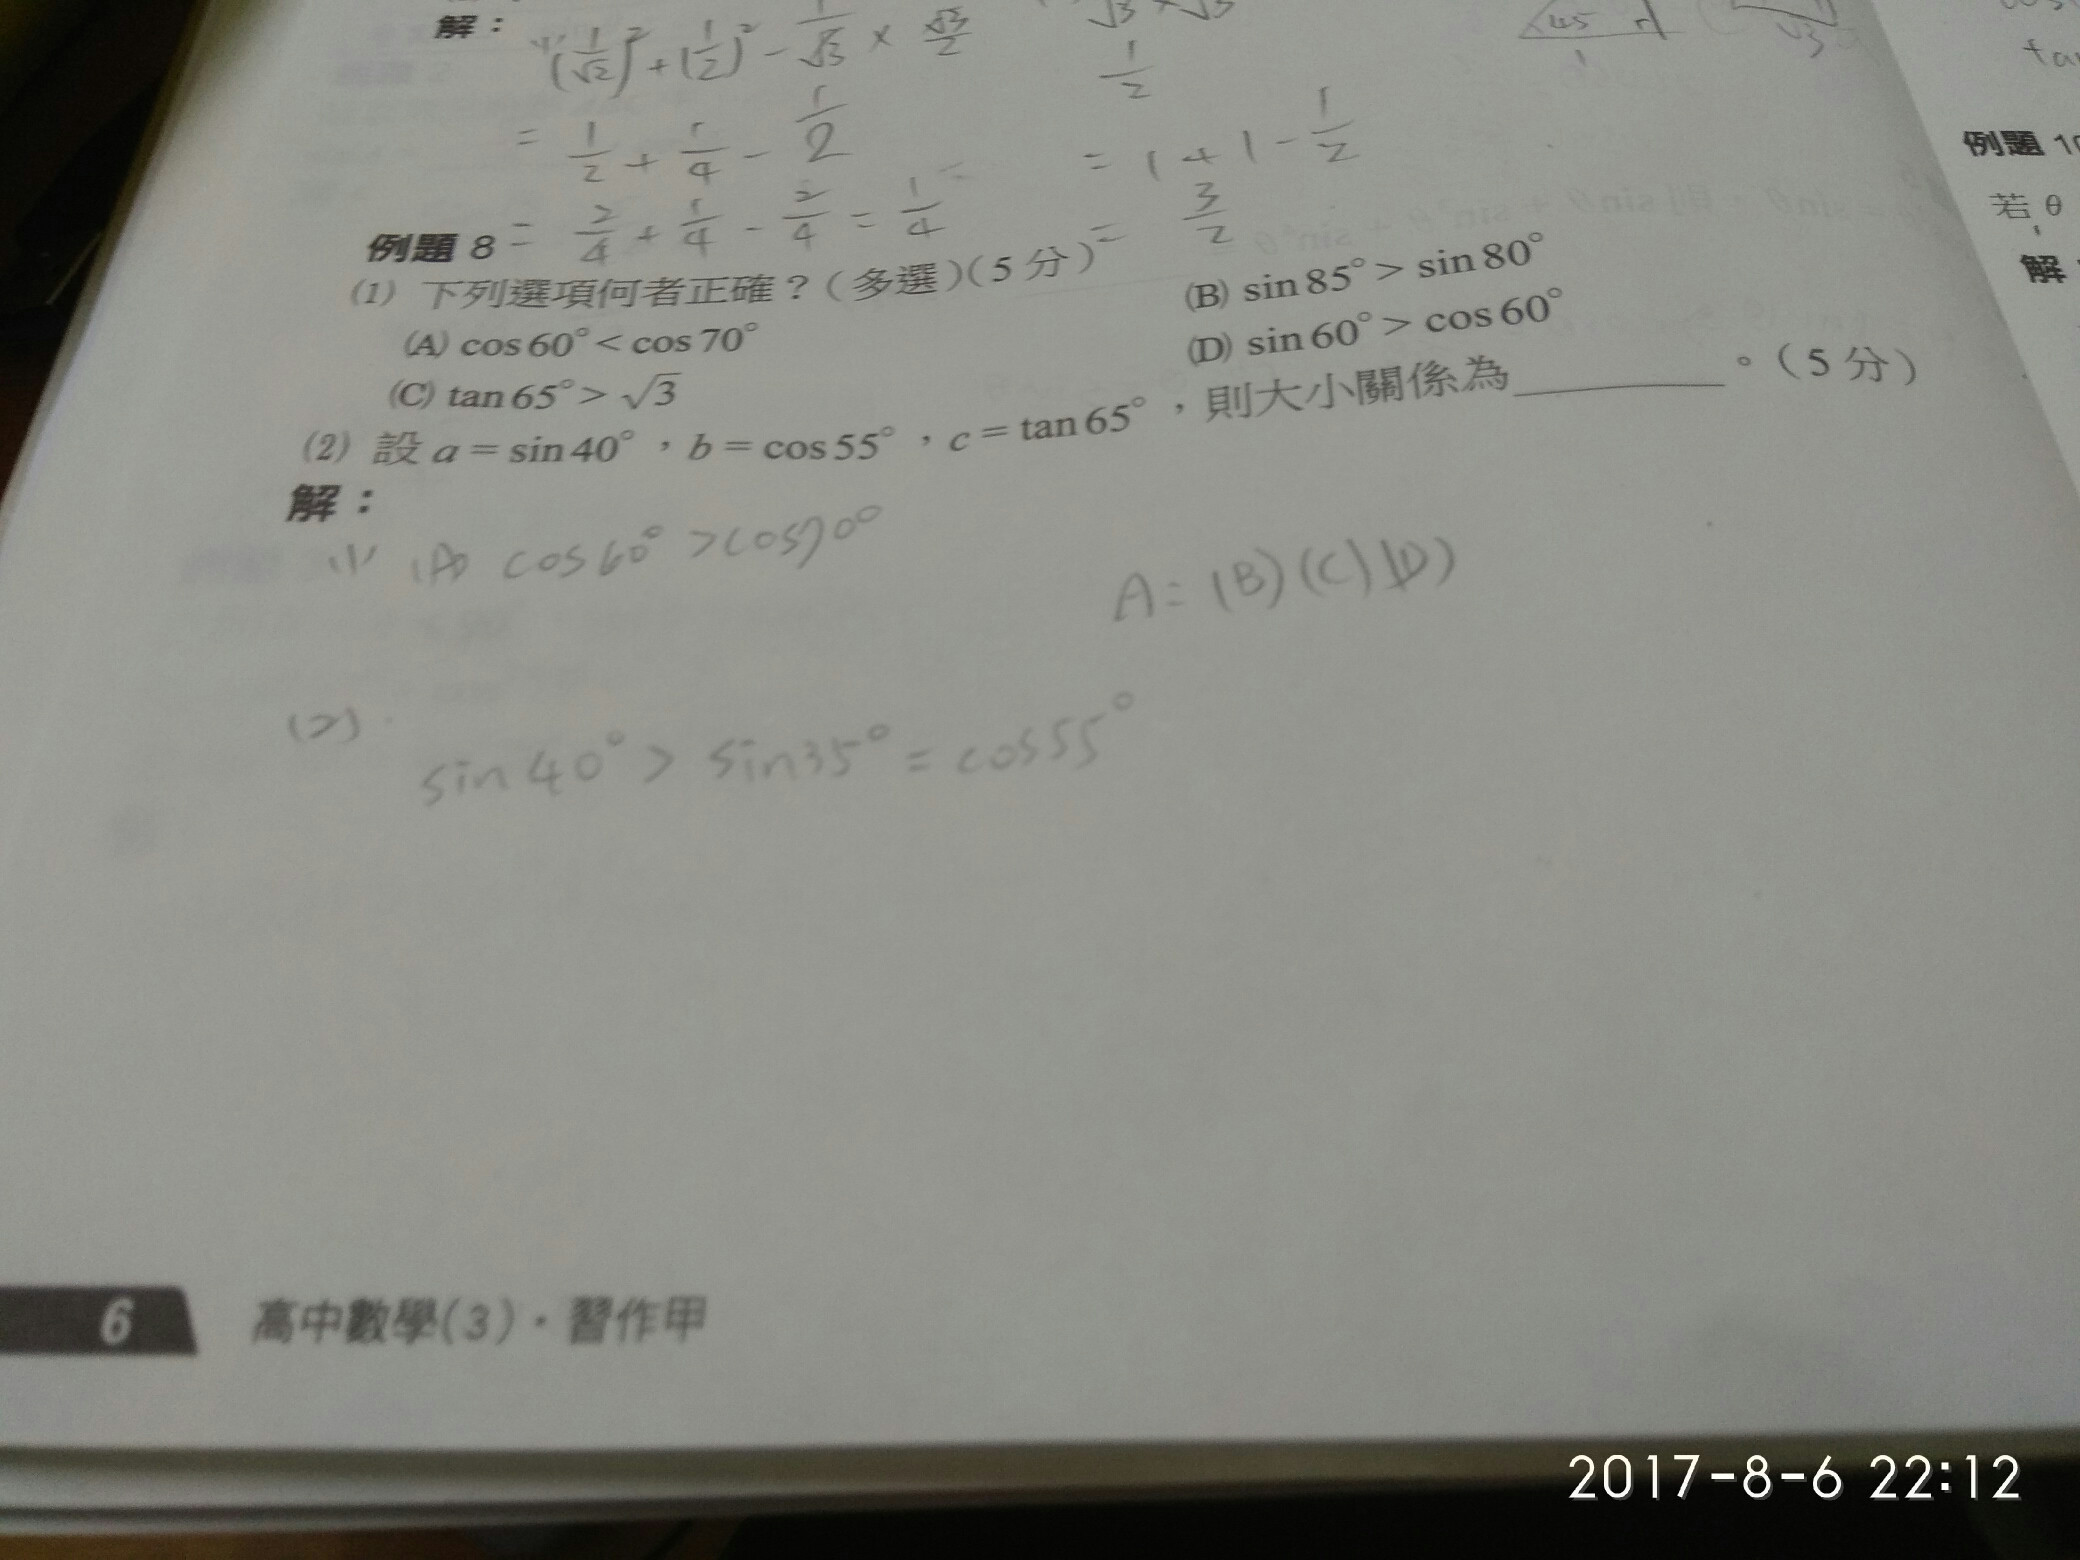 解：
(1) (1/√2)² + (1/2)² − 1/√3 × √3/2
= 1/2 + 1/4 − 1/2
= 1 + 1 − 1/2
= 2/4 + 1/4 − 2/4 = 1/4
= 3/2
例題 8
(1) 下列選項何者正確？（多選）（5 分）
(A) cos 60° < cos 70°
(B) sin 85° > sin 80°
(C) tan 65° > √3
(D) sin 60° > cos 60°
(2) 設 a = sin 40°，b = cos 55°，c = tan 65°，則大小關係為________。（5 分）
解：
(1) (A) cos 60° > cos 70°
A = (B)(C)(D)
(2)
sin 40° > sin 35° = cos 55°
6 高中數學(3)．習作甲
45
1
√3
例題 10
若 θ
解
2017-8-6 22:12